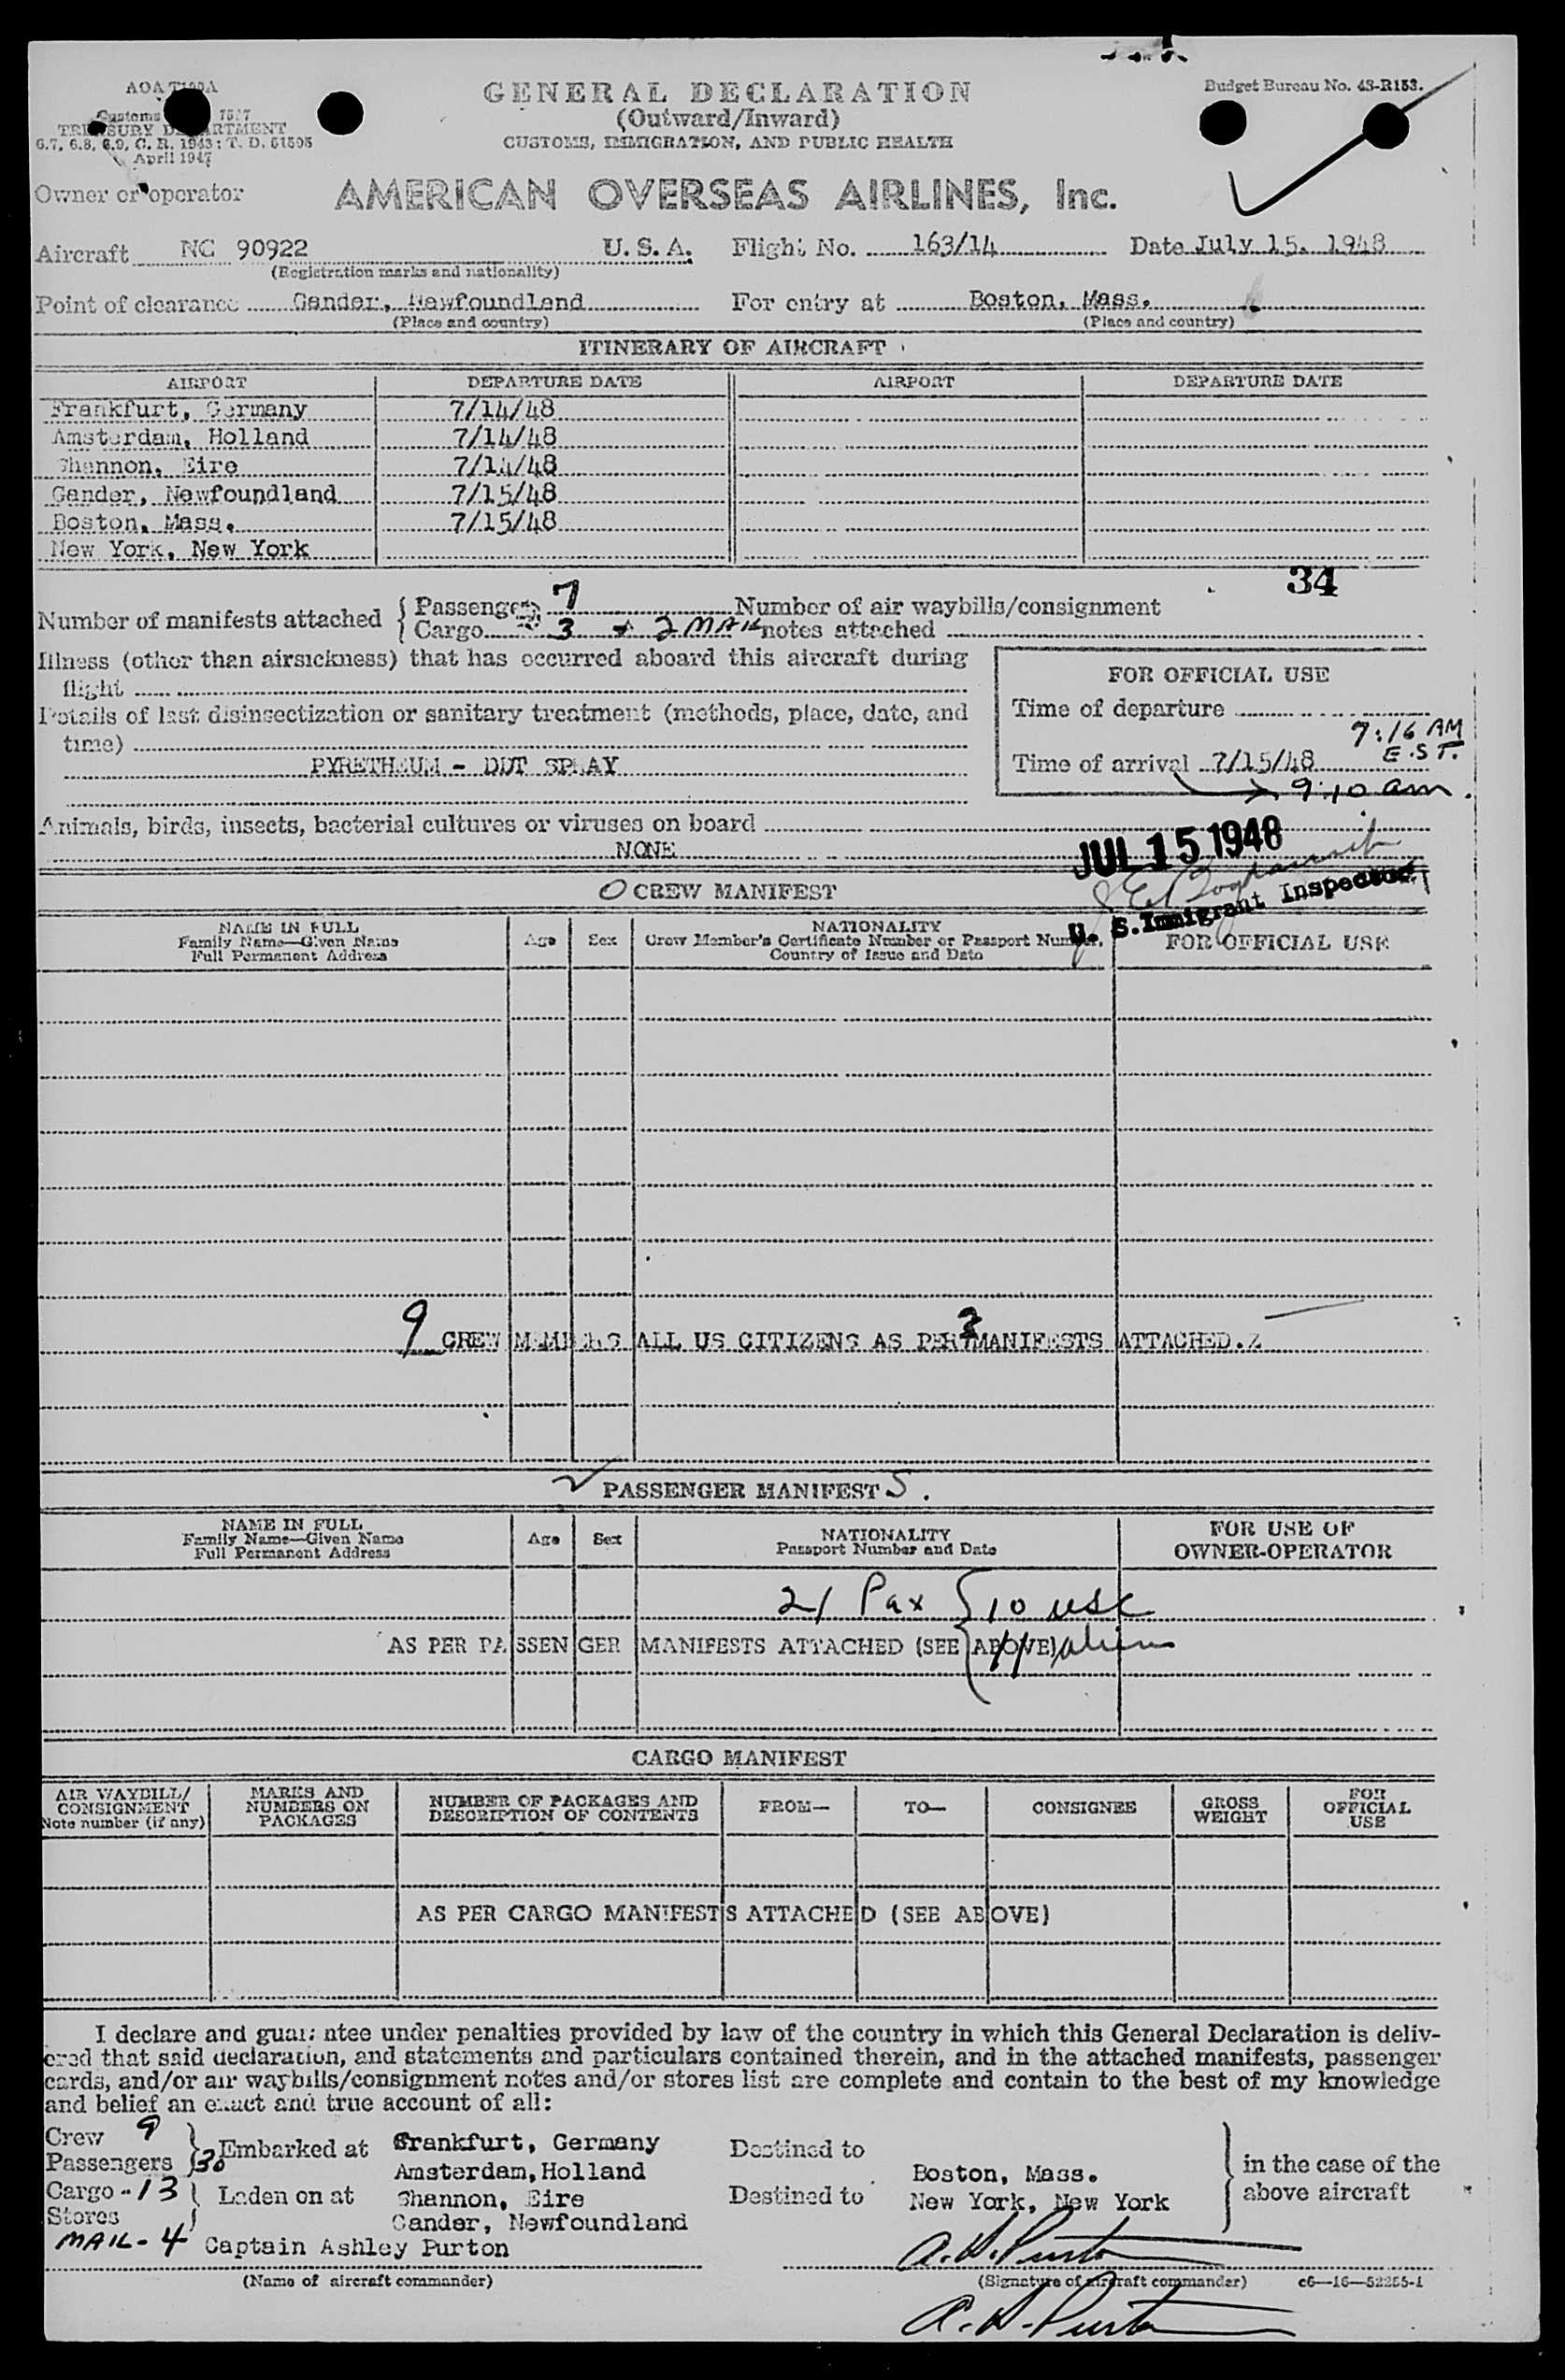 GENERAL DECLARATION
(Outward/Inward)
CUSTOMS, IMMIGRATION, AND PUBLIC HEALTH
Budget Bureau No. 48-R153.
Customs
TREASURY DEPARTMENT
6.7, 6.8, 6.9, C. R. 1943: T. D. 51595
April 1947
Owner or operator AMERICAN OVERSEAS AIRLINES, Inc.
Aircraft NC 90922 U. S. A. Flight No. 163/14 Date July 15, 1948
(Registration marks and nationality)
Point of clearance Gander, Newfoundland For entry at Boston, Mass.
(Place and country) (Place and country)
ITINERARY OF AIRCRAFT
AIRPORT DEPARTURE DATE AIRPORT DEPARTURE DATE
Frankfurt, Germany 7/14/48
Amsterdam, Holland 7/14/48
Shannon, Eire 7/14/48
Gander, Newfoundland 7/15/48
Boston, Mass. 7/15/48
New York, New York
34
Number of manifests attached { Passenger 7 Number of air waybills/consignment
Cargo 3 + 2 MAIL notes attached
Illness (other than airsickness) that has occurred aboard this aircraft during
flight
Details of last disinsectization or sanitary treatment (methods, place, date, and
time)
PYRETHRUM - DDT SPRAY
FOR OFFICIAL USE
Time of departure
7:16 AM
E.S.T.
Time of arrival 7/15/48
9:10 am.
Animals, birds, insects, bacterial cultures or viruses on board
NONE
JUL 15 1948
U. S. Immigrant Inspector
CREW MANIFEST
NAME IN FULL
Family Name—Given Name
Full Permanent Address
Age Sex
NATIONALITY
Crew Member's Certificate Number or Passport Number,
Country of Issue and Date
FOR OFFICIAL USE
9 CREW MEMBERS ALL US CITIZENS AS PER MANIFESTS ATTACHED.
PASSENGER MANIFEST S.
NAME IN FULL
Family Name—Given Name
Full Permanent Address
Age Sex
NATIONALITY
Passport Number and Date
FOR USE OF
OWNER-OPERATOR
21 Pax { 10 USC
AS PER PASSENGER MANIFESTS ATTACHED (SEE ABOVE) 11 aliens
CARGO MANIFEST
AIR WAYBILL/
CONSIGNMENT
Note number (if any)
MARKS AND
NUMBERS ON
PACKAGES
NUMBER OF PACKAGES AND
DESCRIPTION OF CONTENTS
FROM— TO— CONSIGNEE
GROSS
WEIGHT
FOR
OFFICIAL
USE
AS PER CARGO MANIFESTS ATTACHED (SEE ABOVE)
I declare and guarantee under penalties provided by law of the country in which this General Declaration is deliv-
ered that said declaration, and statements and particulars contained therein, and in the attached manifests, passenger
cards, and/or air waybills/consignment notes and/or stores list are complete and contain to the best of my knowledge
and belief an exact and true account of all:
Crew 9
Passengers 30 Embarked at Frankfurt, Germany Destined to
Amsterdam, Holland Boston, Mass. in the case of the
Cargo - 13 Laden on at Shannon, Eire Destined to New York, New York above aircraft
Stores Gander, Newfoundland
MAIL - 4 Captain Ashley Purton A. H. Purton
(Name of aircraft commander) (Signature of aircraft commander) c6—16—52255-1
A. H. Purton